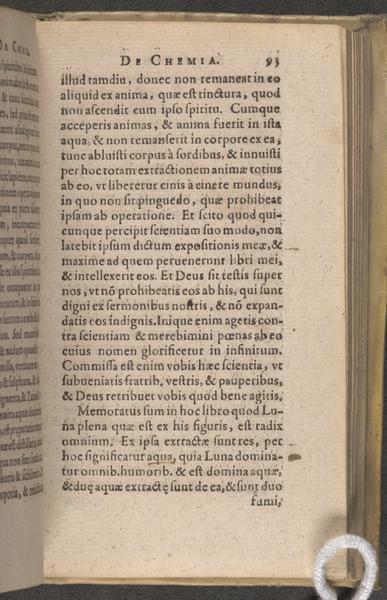 DE CHEMIA. 93
illud tamdiu, donec non remaneat in eo
aliquid ex anima, quæ est tinctura, quod
non ascendit cum ipso spiritu. Cumque
acceperis animas, & anima fuerit in ista
aqua, & non remanserit in corpore ex ea,
tunc abluisti corpus à sordibus, & innuisti
per hoc totam extractionem animæ totius
ab eo, vt liberetur cinis à cinere mundus,
in quo non sit pinguedo, quæ prohibeat
ipsam ab operatione. Et scito quod qui-
cunque percipit scientiam suo modo, non
latebit ipsum dictum expositionis meæ, &
maxime ad quem peruenerunt libri mei,
& intellexerit eos. Et Deus sit testis super
nos, vt nō prohibeatis eos ab his, qui sunt
digni ex sermonibus nostris, & nō expan-
datis eos indignis. Inique enim agetis con-
tra scientiam & merebimini pœnas ab eo
cuius nomen glorificetur in infinitum.
Commissa est enim vobis hæc scientia, vt
subueniatis fratrib. vestris, & pauperibus,
& Deus retribuet vobis quod bene agitis.
Memoratus sum in hoc libro quod Lu-
na plena quæ est ex his figuris, est radix
omnium. Ex ipsa extractæ sunt res, per
hoc significatur aqua, quia Luna domina-
tur omnib. humorib. & est domina aquæ,
& duę aquæ extractę sunt de ea, & sunt duo
fumi,